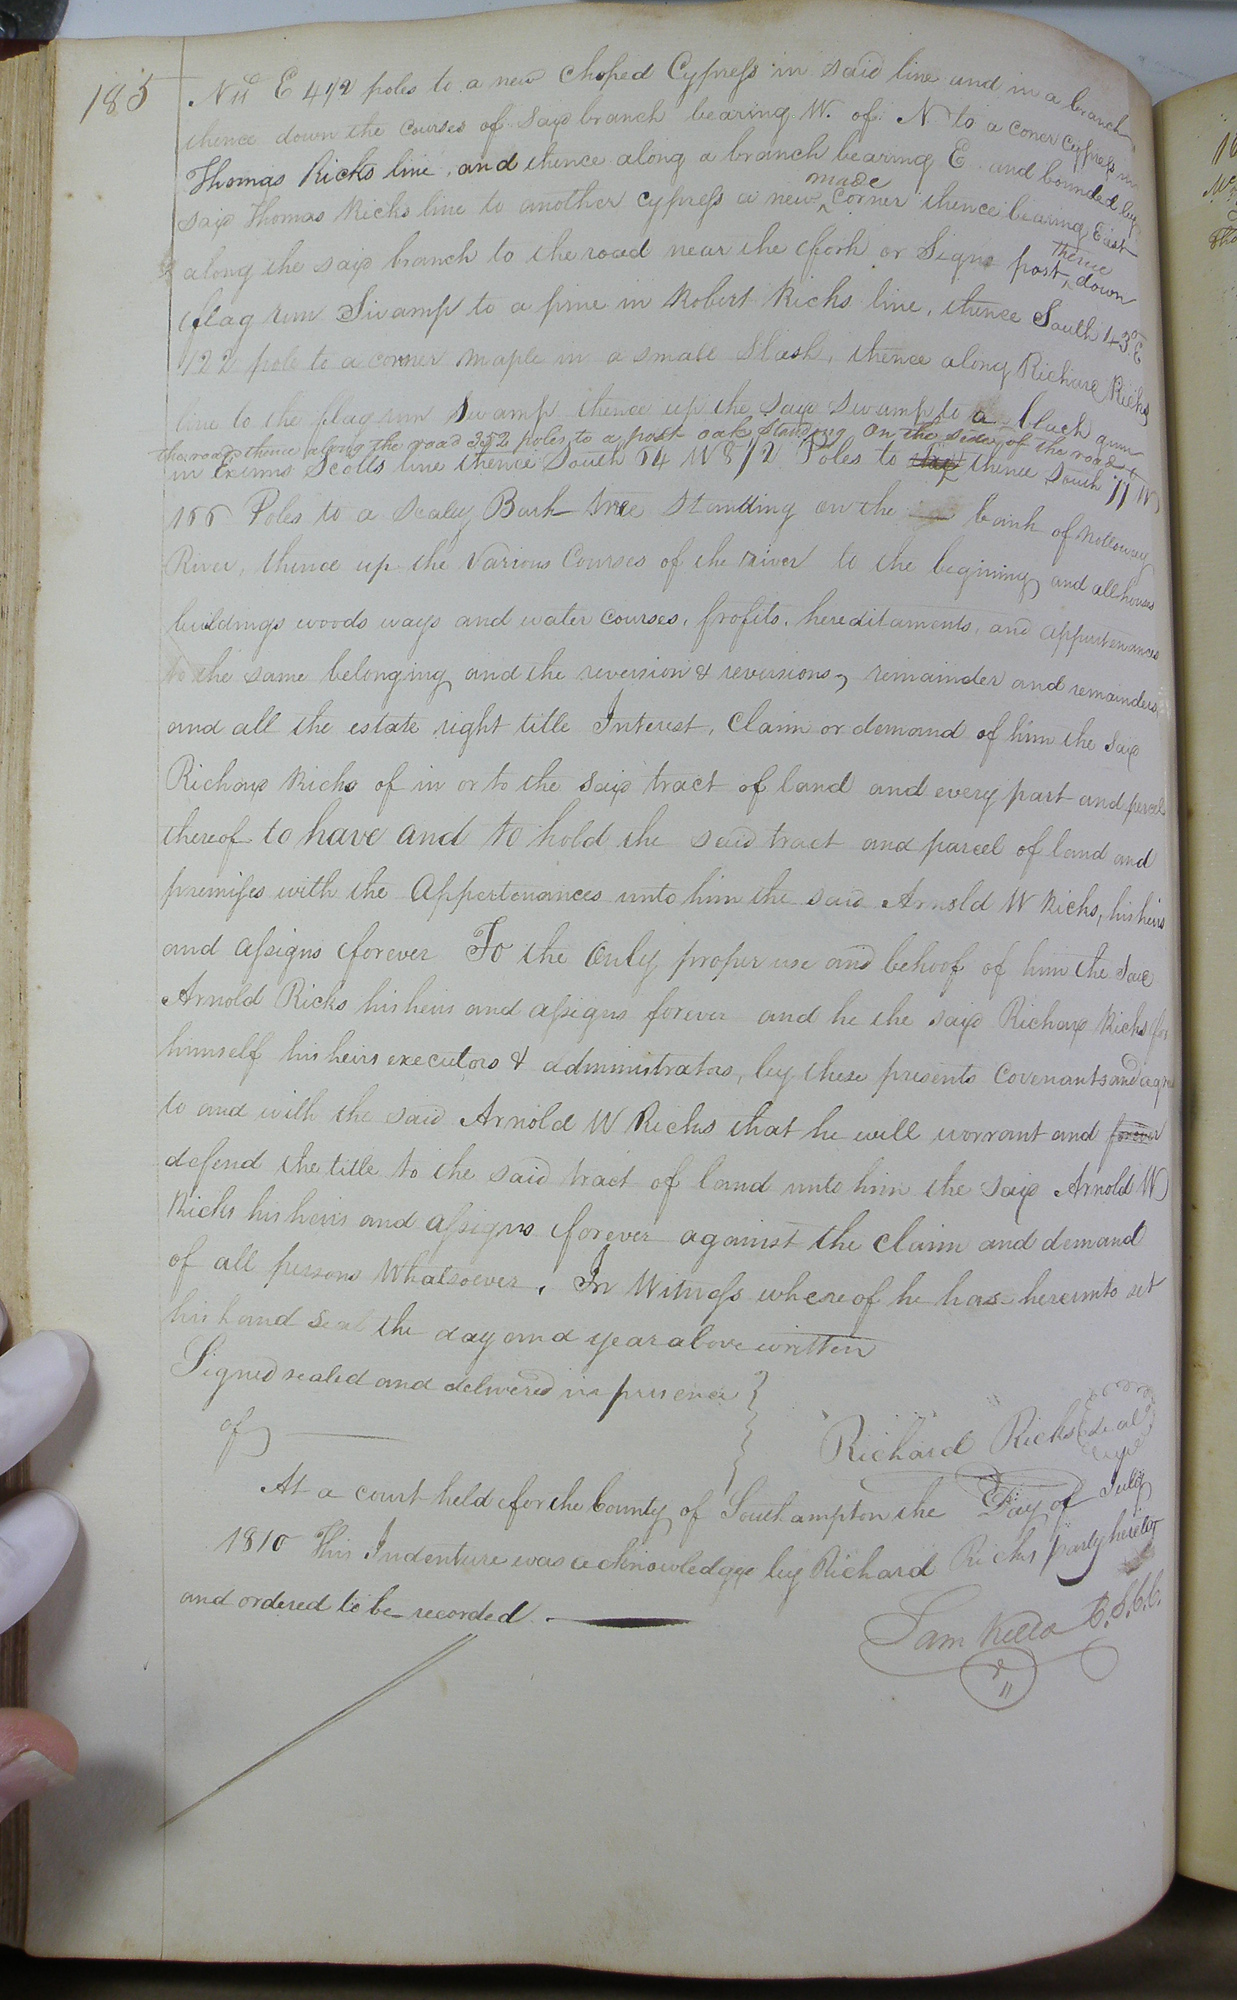 185
N 11° E 41/2 poles to a new Choped Cypress in said line and in a branch
thence down the courses of said branch bearing W. of N to a coner Cypress in
Thomas Ricks line, and thence along a branch bearing E. and bounded by
said Thomas Ricks line to another cypress a new made Corner thence bearing East
along the said branch to the road near the fork or Signe post, thence down
flag run Swamp to a pine in Robert Ricks line, thence South 43° E
122 pole to a corner maple in a small slash, thence along Richard Ricks
line to the flag run Swamp thence up the said swamp to a black gum
the road thence along the road 352 poles to a post oak standing on the side of the road
in Exums Scotts line thence South 54 W 81/2 Poles to thence South 11 W
166 Poles to a Scaley Bark tree Standing on the bank of Nottoway
River, thence up the Various Courses of the river to the begining and all houses
buildings woods ways and water courses, profits, hereditaments, and appurtenances
to the same belonging and the reversion & reversions, remainder and remainders
and all the estate right title Interest, Claim or demand of him the said
Richard Ricks of in or to the said tract of land and every part and parcel
thereof to have and to hold the said tract and parcel of land and
premises with the Appertenances unto him the said Arnold W Ricks, his heirs
and assigns forever To the Only proper use and behoof of him the said
Arnold Ricks his heirs and assigns forever and he the said Richard Ricks for
himself his heirs executors & administrators, by these presents Covenants and agree
to and with the said Arnold W Ricks that he will warrant and forever
defend the title to the said tract of land unto him the said Arnold W
Ricks his heirs and assigns forever against the claim and demand
of all persons Whatsoever, In Witness whereof he has hereunto set
his hand Seal the day and year above written
Signed sealed and delivered in presence
of
Richard Ricks seal
At a court held for the County of Southampton the Day of July
1810 This Indenture was acknowledged by Richard Ricks party hereto
and ordered to be recorded
Sam Kello C.S.C.C.